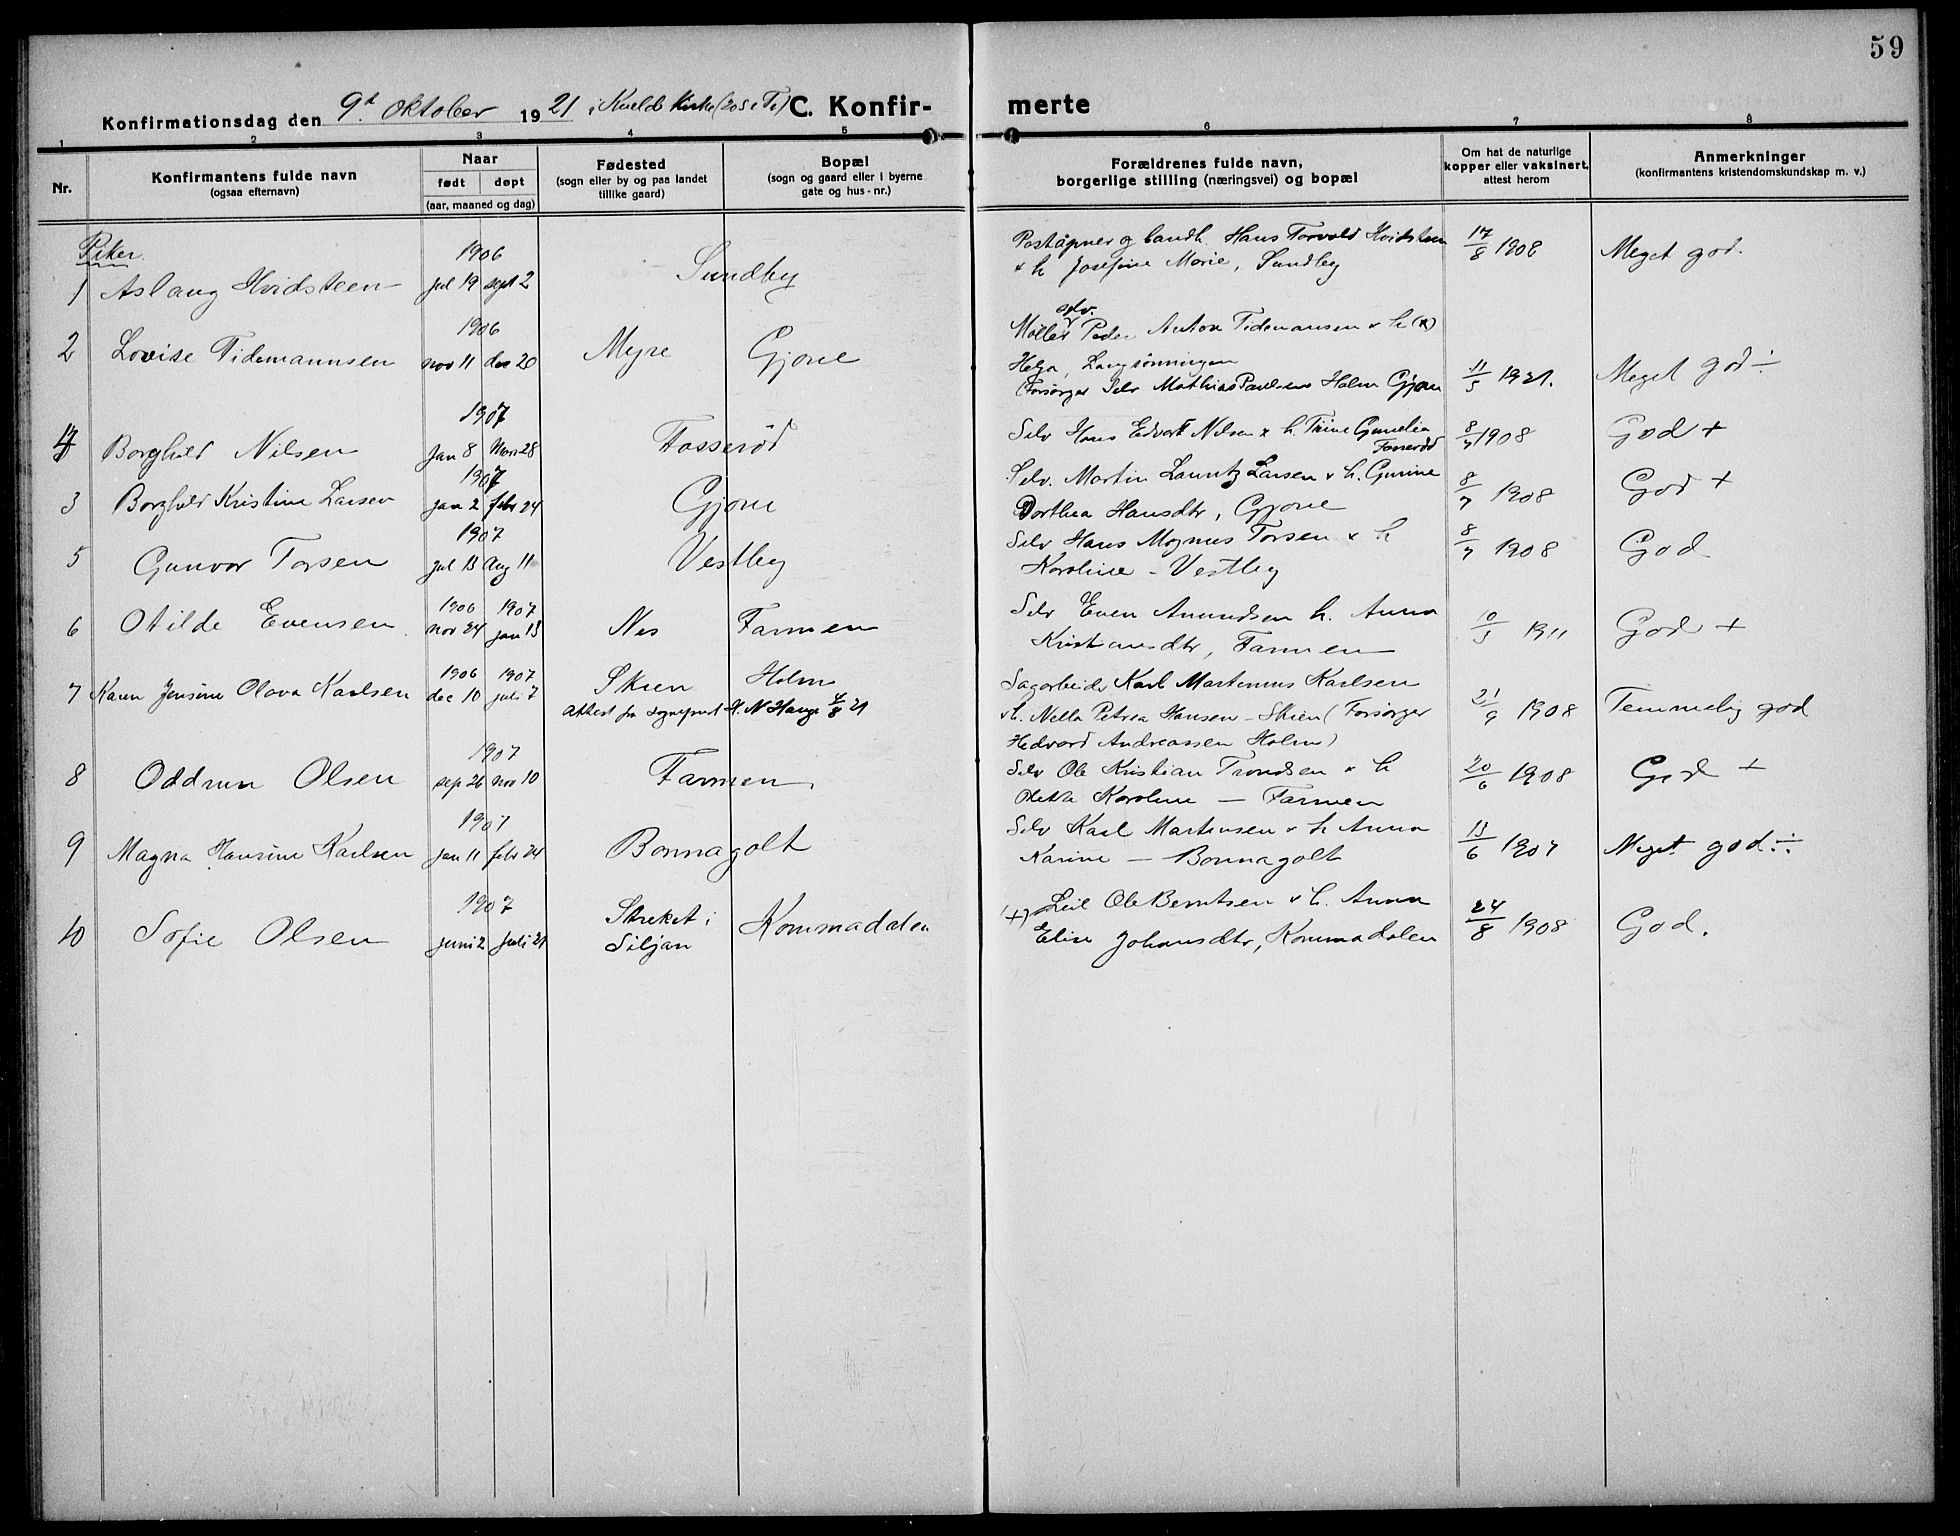 59
Konfirmationsdag den 9d oktober 1921 i Kvelde Kirke (20 S e Tr) C. Konfir- merte
1 2 3 4 5 6 7 8
Nr.
Konfirmantens fulde navn
(ogsaa efternavn)
Naar
født døpt
(aar, maaned og dag)
Fødested
(sogn eller by og paa landet
tillike gaard)
Bopæl
(sogn og gaard eller i byerne
gate og hus-nr.)
Forældrenes fulde navn,
borgerlige stilling (næringsvei) og bopæl
Om hat de naturlige
kopper eller vaksinert,
attest herom
Anmerkninger
(konfirmantens kristendomskundskap m. v.)
Piker
1906
1 Aslaug Hvidsteen jul 19 sept 2 Sundby
Poståpner og landh. Hans Torvald Hvidsteen
& h. Josefine Marie, Sundby
17/8 1908 Meget god.
1906
2 Lovise Tidemannsen nov 11 dec 20 Myre Gjone
selv.
Møller Peder Anton Tidemansen & h (x)
Helga, Langsønningen
Forsørger Selv Mathias Paulsen Holm Gjone
11/5 1921. Meget god ÷
1907
4 Borghild Nilsen Jan 8 Mars 28 Fosserød
Selv Hans Edvart Nilsen & h. Trine Gunelia
Fosserød
8/7 1908 God +
1907
3 Borghild Kristine Larsen jan 2 febr 24 Gjone
Selv. Martin Lauritz Larsen & h. Gurine
Dorthea Hansdtr, Gjone
8/7 1908 God +
1907
5 Gunvor Torsen jul 13 Aug 11 Vestby
Selv Hans Magnus Torsen & h
Karoline - Vestby
8/7 1908 God
1906 1907
6 Otilde Evensen nov 24 jan 13 Nes Farmen
Selv Even Amundsen h. Anna
Kristiansdtr, Farmen
10/5 1911 God +
1906 1907
7 Karen Jensine Olava Karlsen dec 10 juli 7 Skien Holm
Attest fra sogneprest H. N Hauge 4/8 21
Sagarbeider Karl Martinius Karlsen
& h. Nella Petrea Hansen - Skien (Forsørger
Hedvard Andreassen Holm)
21/9 1908 Temmelig god
1907
8 Oddrun Olsen sep 26 nov 10 Farmen
Selv Ole Kristian Trondsen & h
Olette Karoline - Farmen
20/6 1908 God +
1907
9 Magna Hansine Karlsen jan 11 febr 24 Bonnagolt
Selv Karl Martinsen & h Anna
Karine - Bonnagolt
13/6 1907 Meget god ÷
1907
10 Sofie Olsen juni 2 Juli 21
Streket i
Siljan
Kommadalen
(+) Leil Ole Berntsen & h. Anna
Elise Johansdtr, Kommadalen
24/8 1908 God.